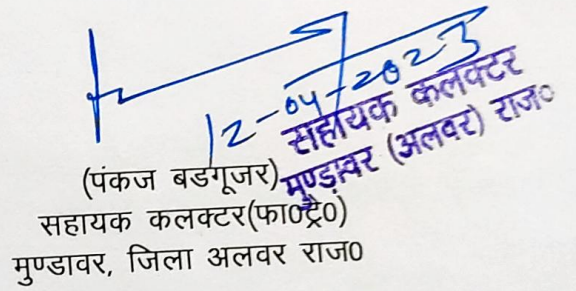 12-04-2023
सहायक कलक्टर
मुण्डावर (अलवर) राज०
(पंकज बडगूजर)
सहायक कलक्टर(फा0ट्रै0)
मुण्डावर, जिला अलवर राज0